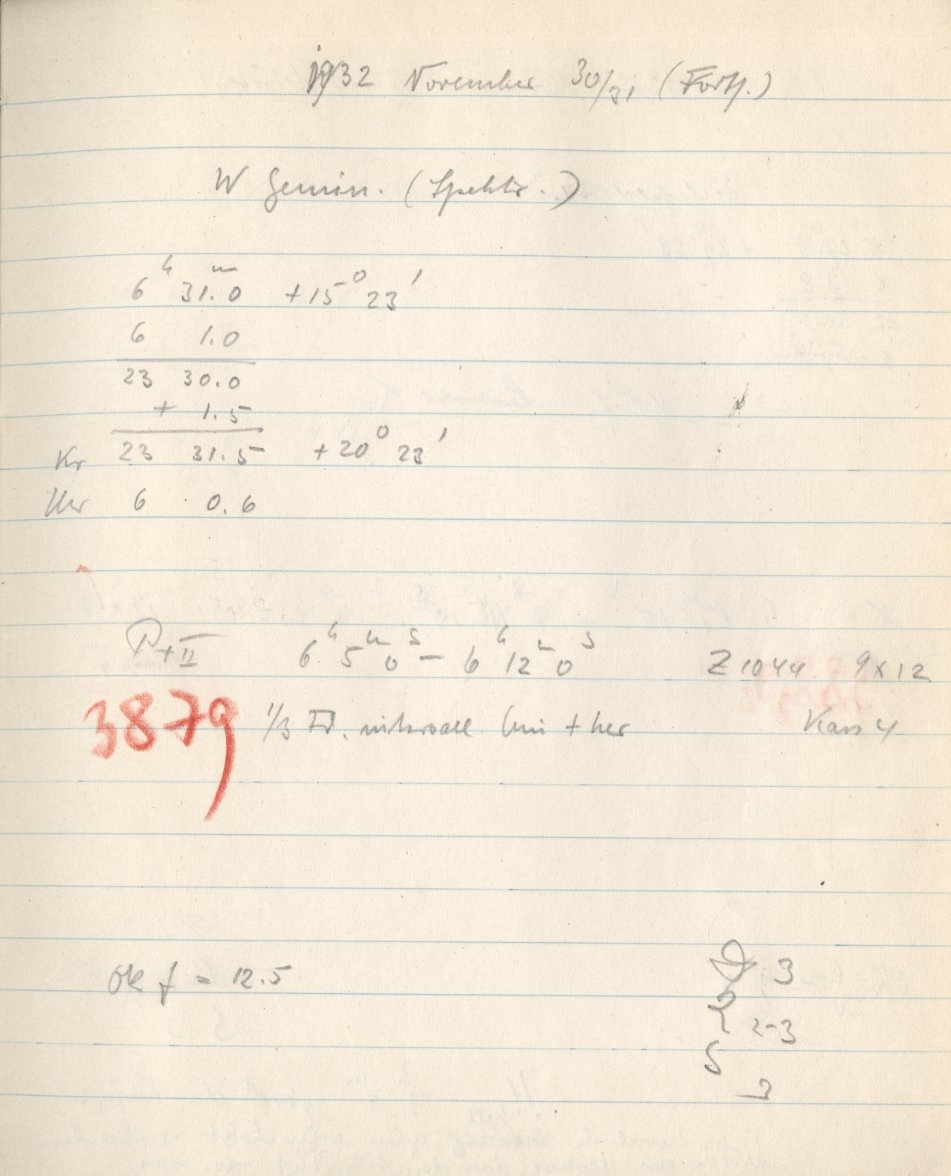 1932 November 30/31 (Forts.)
W Gemin. (Spektr.)
6ʰ 31.0ᵐ +15° 23'
6 1.0
23 30.0
+ 1.5
Kr 23 31.5 +20° 23'
Uhr 6 0.6
P+II 6ʰ 5ᵐ 0ˢ – 6ʰ 12ᵐ 0ˢ Z 1044 9x12
3879 1/3 Fd. intervall hin + her Kass 4
Ok f = 12.5
D 3
R 2-3
S 3